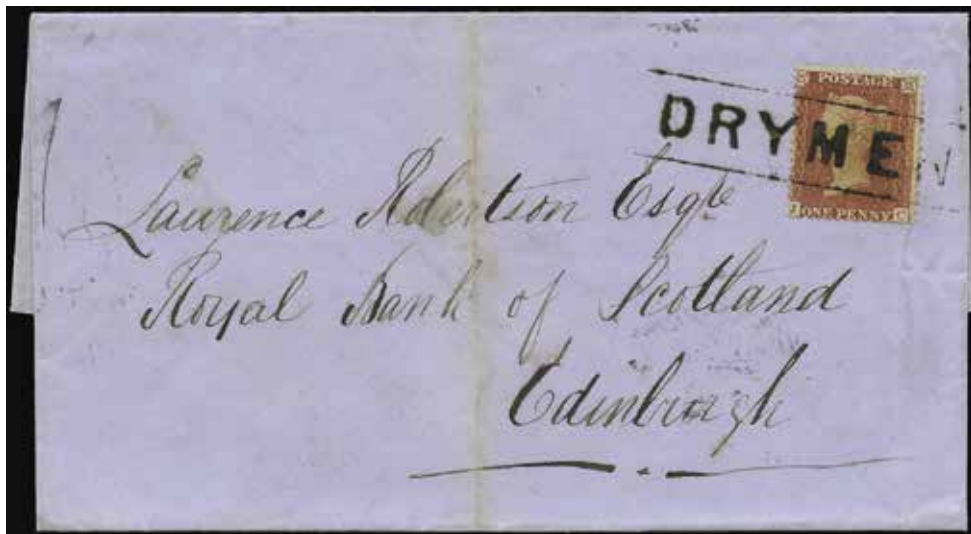 POSTAGE
DRYMEN
ONE PENNY
J C
Lawrence Robertson Esqre
Royal Bank of Scotland
Edinburgh